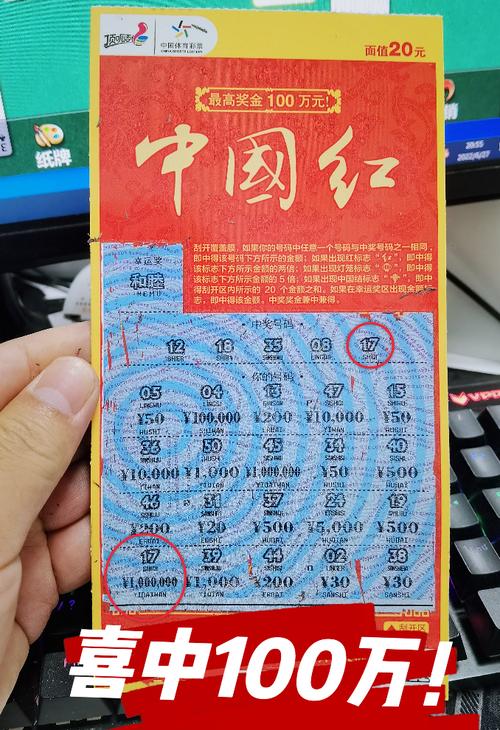 顶呱刮
中国体育彩票
CHINA SPORTS LOTTERY
面值20元
最高奖金 100 万元!
中國红
纸牌
20:55
2022/6/27
刮开覆盖膜，如果你的号码中任意一个号码与中奖号码之一相同，
即中得该号码下方所示的金额；如果出现红标志“红”，即中得
该标志下方所示金额的两倍；如果出现灯笼标志“
”，即中得
该标志下方所示金额的 5 倍；如果出现中国结标志“
”，即中
得刮开区内所示的 20 个金额之和，如果在幸运奖区出现金额标
志，即中得该金额。中奖奖金兼中兼得。
幸运奖
和睦
HEMU
中奖号码
12 18 35 08 17
你的号码
05 04 13 47 15
¥50 ¥100,000 ¥200 ¥10,000 ¥50
WUSHI SHIWAN ERBAI YIWAN WUSHI
36 50 45 34 40
¥10,000 ¥1,000 ¥1,000,000 ¥50 ¥500
YIWAN YIQIAN YIBAIWAN WUSHI WUBAI
46 31 37 24 19
¥200 ¥20 ¥500 ¥5,000 ¥500
ERBAI ERSHI WUBAI WUQIAN WUBAI
17 39 44 02 38
¥1,000,000 ¥1,000 ¥200 ¥30 ¥30
YIBAIWAN YIQIAN ERBAI SANSHI SANSHI
刮开区
喜中100万!